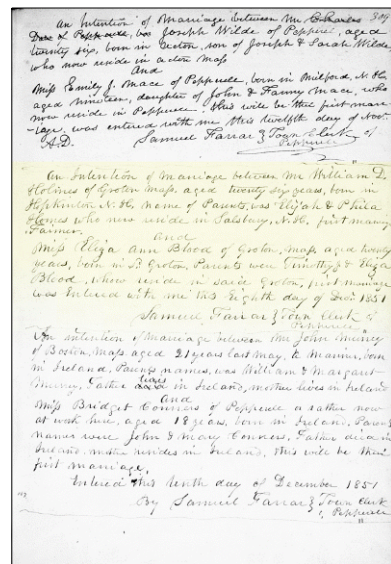 309
An Intention of Marriage between Mr. Charles
Dow of Pepperell, was Joseph Wilde of Pepperell, aged
twenty six, born in Acton, son of Joseph & Sarah Wilde,
who now reside in Acton Mass
And
Miss Emily J. Mace of Pepperell, born in Milford, N.H.
aged nineteen, daughter of John & Fanny Mace, who
now reside in Pepperell. this will be their first marr-
iage, was entered with me this twelfth day of Nov.
A.D.
Samuel Farrar } Town Clerk of
Pepperell
An Intention of Marriage between Mr William D.
Holmes of Groton Mass, aged twenty six years, born in
Hopkinton N.H, name of Parents, was Elijah &
Homes who now reside in Salsbury, N.H. first marriage
Farmer.
and
Miss Eliza Ann Blood of Groton, Mass aged twenty
years, born in Groton, Parents were Timothy & Eliza
Blood, whom reside in said Groton, first marriage
was Entered with me this Eighth day of Dec. 1851
Samuel Farrar } Town Clerk of
Pepperell
An intention of Marriage between Mr John
of Boston, Mass. aged 21 years last May, born
in Ireland, Parents names, was William & Margaret
Father lives in Ireland, mother lives in Ireland
And
Miss Bridget Conners of Pepperell rather now
at work here, aged 18 years, born in Ireland, Parents
names were John & Mary Conners, Father died in
Ireland, mother resides in Ireland, this will be their
first marriage,
Entered this tenth day of December 1851
By Samuel Farrar } Town Clerk
of Pepperell